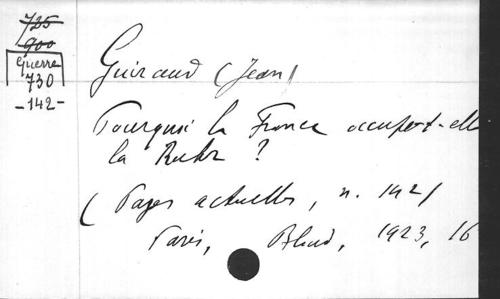 725
900
Guerre
730
-142-
Guiraud (Jean)
Pourquoi la France occupe-t-elle
la Ruhr ?
(Pages actuelles, n. 142)
Paris, Bloud, 1923, 16